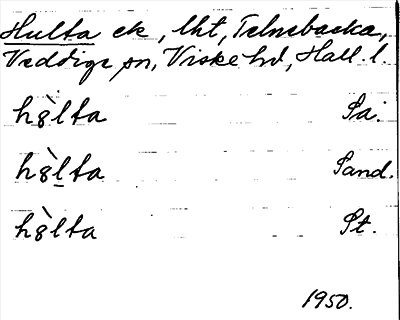 Hulta ek, lht, Telnebacka,
Veddige sn, Viske hd, Hall. l.
hȣ̀lta Sä.
hȣ̀l̲ta Sand.
hȣ̀lta St.
1950.